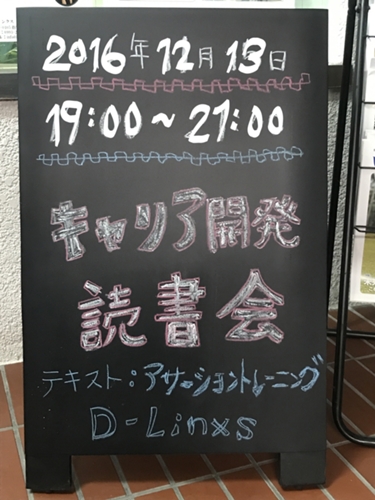 2016年12月13日
19:00~21:00
キャリア開発
読書会
テキスト:アサーショントレーニング
D-Linxs